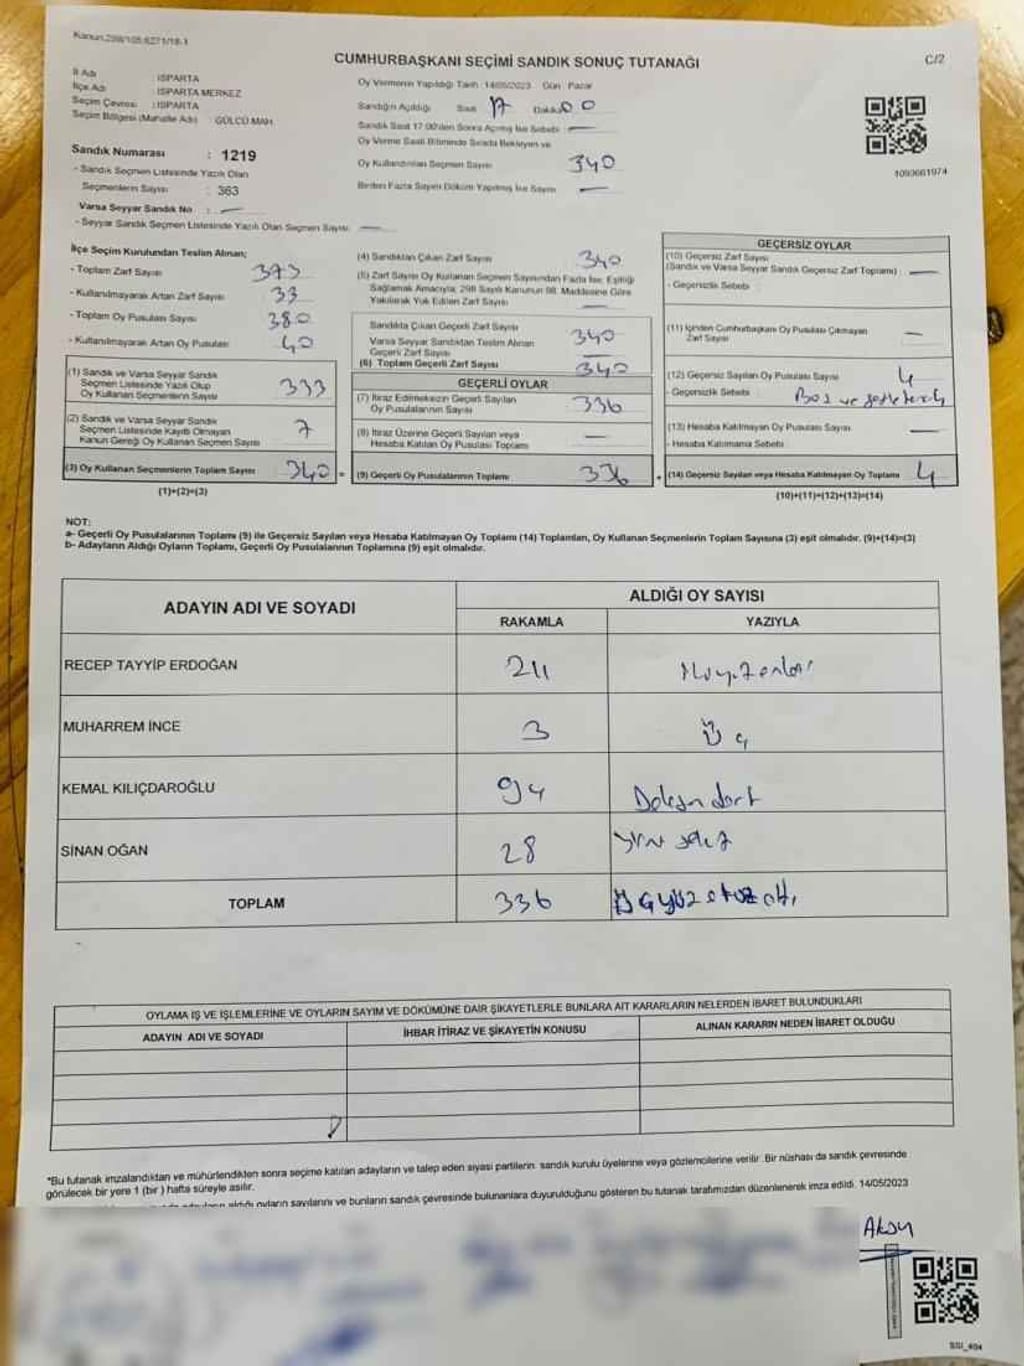 Kanun:298/105:6271/18-1
CUMHURBAŞKANI SEÇİMİ SANDIK SONUÇ TUTANAĞI
C/2
İl Adı : ISPARTA
İlçe Adı : ISPARTA MERKEZ
Seçim Çevresi : ISPARTA
Seçim Bölgesi (Mahalle Adı) : GÜLCÜ MAH.
Sandık Numarası : 1219
- Sandık Seçmen Listesinde Yazılı Olan
Seçmenlerin Sayısı : 363
Varsa Seyyar Sandık No : —
- Seyyar Sandık Seçmen Listesinde Yazılı Olan Seçmen Sayısı: —
Oy Vermenin Yapıldığı Tarih :14/05/2023 Gün :Pazar
Sandığın Açıldığı Saat 17 Dakika 00
Sandık Saat 17:00'den Sonra Açılmış İse Sebebi: —
Oy Verme Saati Bitiminde Sırada Bekleyen ve
Oy Kullandırılan Seçmen Sayısı 340
Birden Fazla Sayım Döküm Yapılmış İse Sayısı —
1093661974
İlçe Seçim Kurulundan Teslim Alınan;
- Toplam Zarf Sayısı 373
- Kullanılmayarak Artan Zarf Sayısı 33
- Toplam Oy Pusulası Sayısı 380
- Kullanılmayarak Artan Oy Pusulası 40
(1) Sandık ve Varsa Seyyar Sandık
Seçmen Listesinde Yazılı Olup
Oy Kullanan Seçmenlerin Sayısı 333
(2) Sandık ve Varsa Seyyar Sandık
Seçmen Listesinde Kayıtlı Olmayan
Kanun Gereği Oy Kullanan Seçmen Sayısı 7
(3) Oy Kullanan Seçmenlerin Toplam Sayısı 340
(1)+(2)=(3)
(4) Sandıktan Çıkan Zarf Sayısı 340
(5) Zarf Sayısı Oy Kullanan Seçmen Sayısından Fazla İse, Eşitliği
Sağlamak Amacıyla, 298 Sayılı Kanunun 98. Maddesine Göre
Yakılarak Yok Edilen Zarf Sayısı —
Sandıkta Çıkan Geçerli Zarf Sayısı 340
Varsa Seyyar Sandıktan Teslim Alınan
Geçerli Zarf Sayısı —
(6) Toplam Geçerli Zarf Sayısı 340
GEÇERLİ OYLAR
(7) İtiraz Edilmeksizin Geçerli Sayılan
Oy Pusulalarının Sayısı 336
(8) İtiraz Üzerine Geçerli Sayılan veya
Hesaba Katılan Oy Pusulası Toplamı —
= (9) Geçerli Oy Pusulalarının Toplamı 336
GEÇERSİZ OYLAR
(10) Geçersiz Zarf Sayısı
(Sandık ve Varsa Seyyar Sandık Geçersiz Zarf Toplamı) : —
- Geçersizlik Sebebi :
(11) İçinden Cumhurbaşkanı Oy Pusulası Çıkmayan
Zarf Sayısı —
(12) Geçersiz Sayılan Oy Pusulası Sayısı 4
- Geçersizlik Sebebi : Boş ve
(13) Hesaba Katılmayan Oy Pusulası Sayısı —
- Hesaba Katılmama Sebebi
+ (14) Geçersiz Sayılan veya Hesaba Katılmayan Oy Toplamı 4
(10)+(11)+(12)+(13)=(14)
NOT:
a- Geçerli Oy Pusulalarının Toplamı (9) ile Geçersiz Sayılan veya Hesaba Katılmayan Oy Toplamı (14) Toplamları, Oy Kullanan Seçmenlerin Toplam Sayısına (3) eşit olmalıdır. (9)+(14)=(3)
b- Adayların Aldığı Oyların Toplamı, Geçerli Oy Pusulalarının Toplamına (9) eşit olmalıdır.
ADAYIN ADI VE SOYADI
ALDIĞI OY SAYISI
RAKAMLA YAZIYLA
RECEP TAYYİP ERDOĞAN 211
MUHARREM İNCE 3 Üç
KEMAL KILIÇDAROĞLU 94 Doksan dört
SİNAN OĞAN 28
TOPLAM 336 Üçyüzotuzaltı
OYLAMA İŞ VE İŞLEMLERİNE VE OYLARIN SAYIM VE DÖKÜMÜNE DAİR ŞİKAYETLERLE BUNLARA AİT KARARLARIN NELERDEN İBARET BULUNDUKLARI
ADAYIN ADI VE SOYADI İHBAR İTİRAZ VE ŞİKAYETİN KONUSU ALINAN KARARIN NEDEN İBARET OLDUĞU
*Bu tutanak imzalandıktan ve mühürlendikten sonra seçime katılan adayların ve talep eden siyasi partilerin sandık kurulu üyelerine veya gözlemcilerine verilir. Bir nüshası da sandık çevresinde
görülecek bir yere 1 (bir) hafta süreyle asılır.
aldığı oyların sayılarını ve bunların sandık çevresinde bulunanlara duyurulduğunu gösteren bu tutanak tarafımızdan düzenlenerek imza edildi. 14/05/2023
Aksu
SSI_404